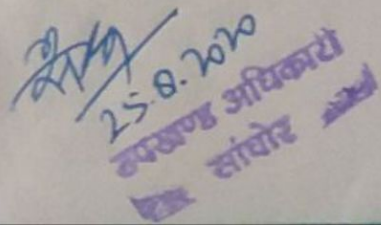 25.8.2020
उपखण्ड अधिकारी
सांचोर